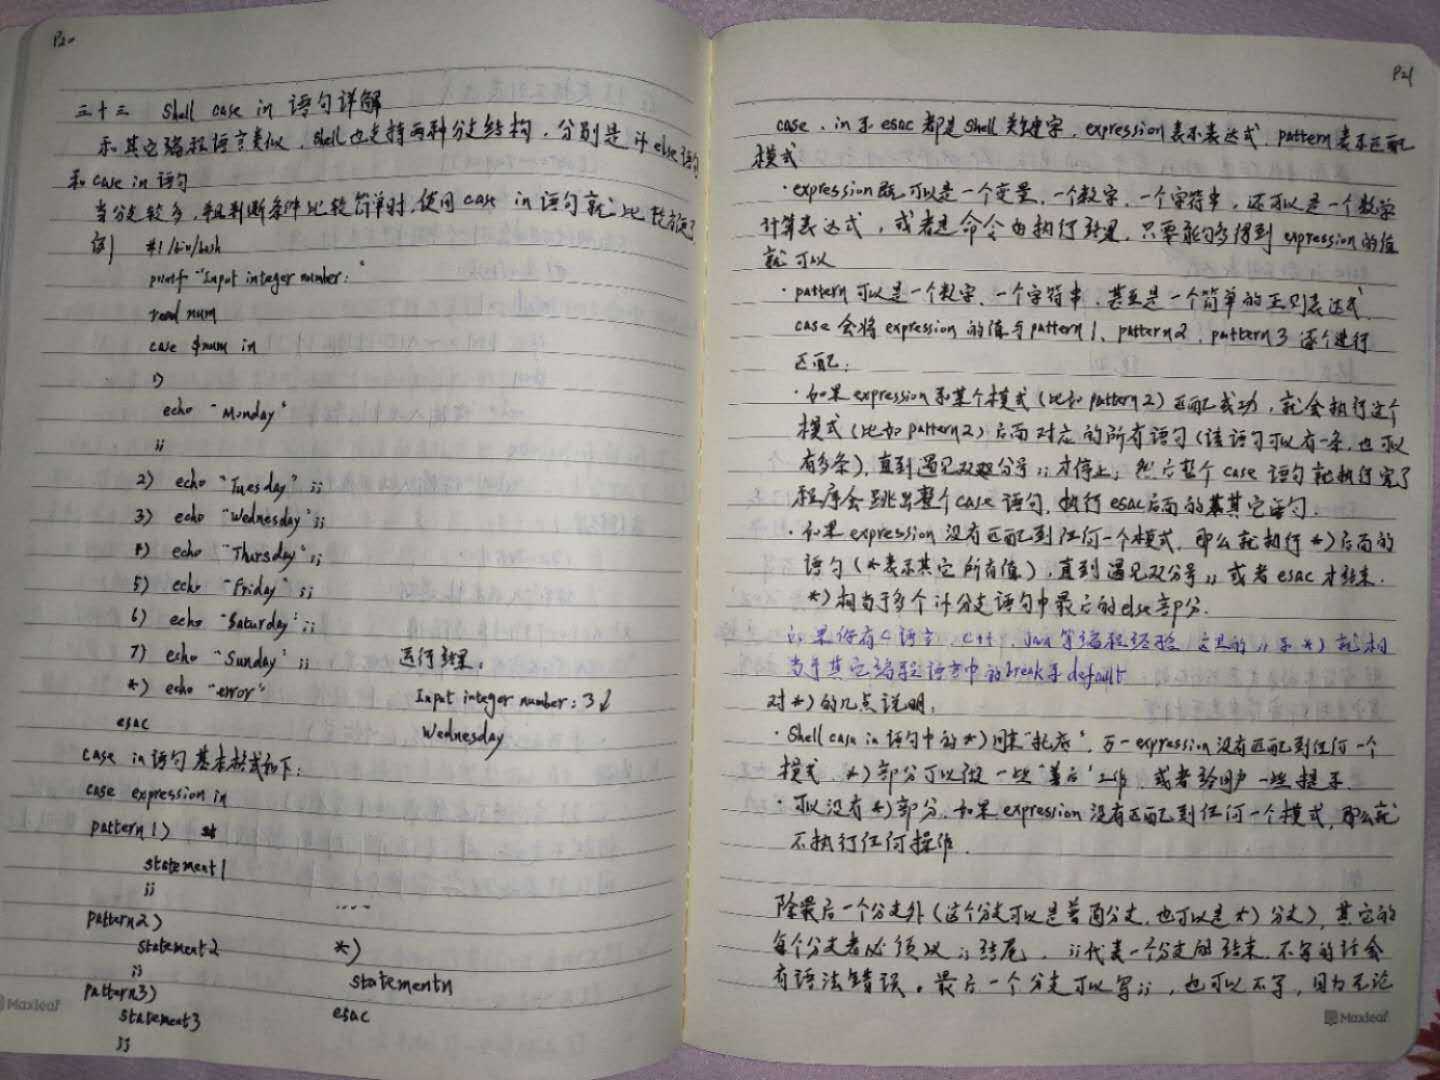 P20
三十三 Shell case in 语句详解
和其它编程语言类似,Shell也支持两种分支结构,分别是 if else语句
和 case in 语句
当分支较多,并且判断条件比较简单时,使用 case in 语句就比较方便了
例 #!/bin/bash
printf "Input integer number:"
read num
case $num in
1)
echo "Monday"
;;
2) echo "Tuesday" ;;
3) echo "Wednesday";;
4) echo "Thursday";;
5) echo "Friday" ;;
6) echo "Saturday";;
7) echo "Sunday" ;; 运行结果:
*) echo "error" Input integer number: 3↙
esac Wednesday
case in 语句基本格式如下:
case expression in
pattern1)
statement1
;;
....
pattern2)
statement2 *)
;; statementn
pattern3)
statement3 esac
;;
Maxleaf
P21
case、in 和 esac 都是 Shell 关键字,expression表示表达式,pattern表示匹配
模式
·expression既可以是一个变量、一个数字、一个字符串,还可以是一个数学
计算表达式,或者是命令的执行结果,只要能够多得到 expression的值
就可以
·pattern可以是一个数字、一个字符串,甚至是一个简单的正则表达式
case 会将 expression 的值与pattern1、pattern2、pattern3 逐个进行
匹配:
·如果 expression 和某个模式(比如 pattern2)匹配成功,就会执行这个
模式(比如 pattern2)后面对应的所有语句(该语句可以有一条,也可以
有多条),直到遇见双分号;;才停止;然后整个 case 语句就执行完了
程序会跳出整个case语句,执行esac后面的其它语句.
·如果 expression 没有匹配到任何一个模式,那么就执行 *)后面的
语句(*表示其它所有值),直到遇见双分号;;或者esac才结束.
*)相当于多个if分支语句中最后的else部分.
如果你有C语言、C++、Java等编程经验,这里的;;和*)就相
当于其它编程语言中的break和default
对*)的几点说明:
·Shell case in 语句中的*)用来"托底",万一expression没有匹配到任何一个
模式,*)部分可以做一些"善后"工作,或者给用户一些提示.
·可以没有*)部分,如果expression没有匹配到任何一个模式,那么就
不执行任何操作.
除最后一个分支外(这个分支可以是普通分支,也可以是*)分支),其它的
每个分支都必须以;;结尾,;;代表一个分支的结束,不写的话会
有语法错误。最后一个分支可以写;;,也可以不写,因为无论
Maxleaf